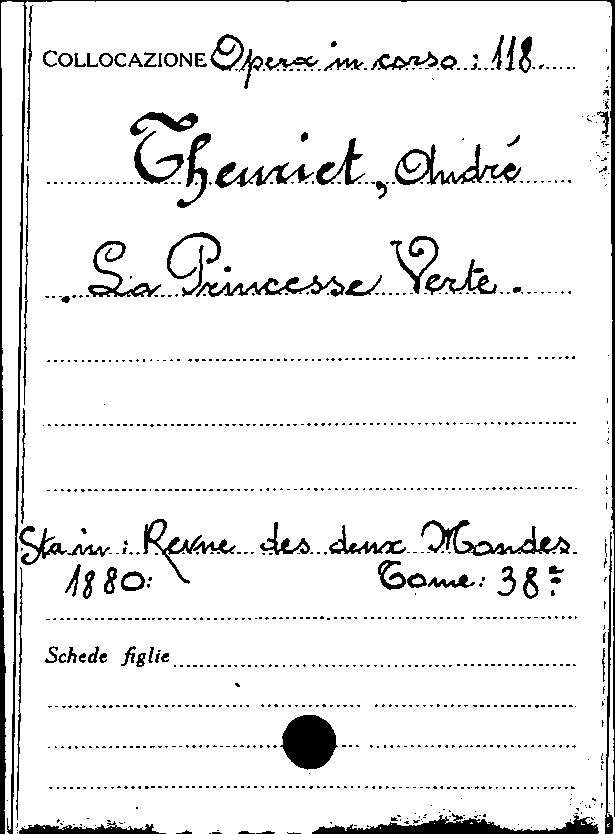 COLLOCAZIONE Opera in corso: 118.
Theuriet, André
La Princesse Verte.
Sta in: Revue des deux Mondes
1880: Tome: 38º
Schede figlie